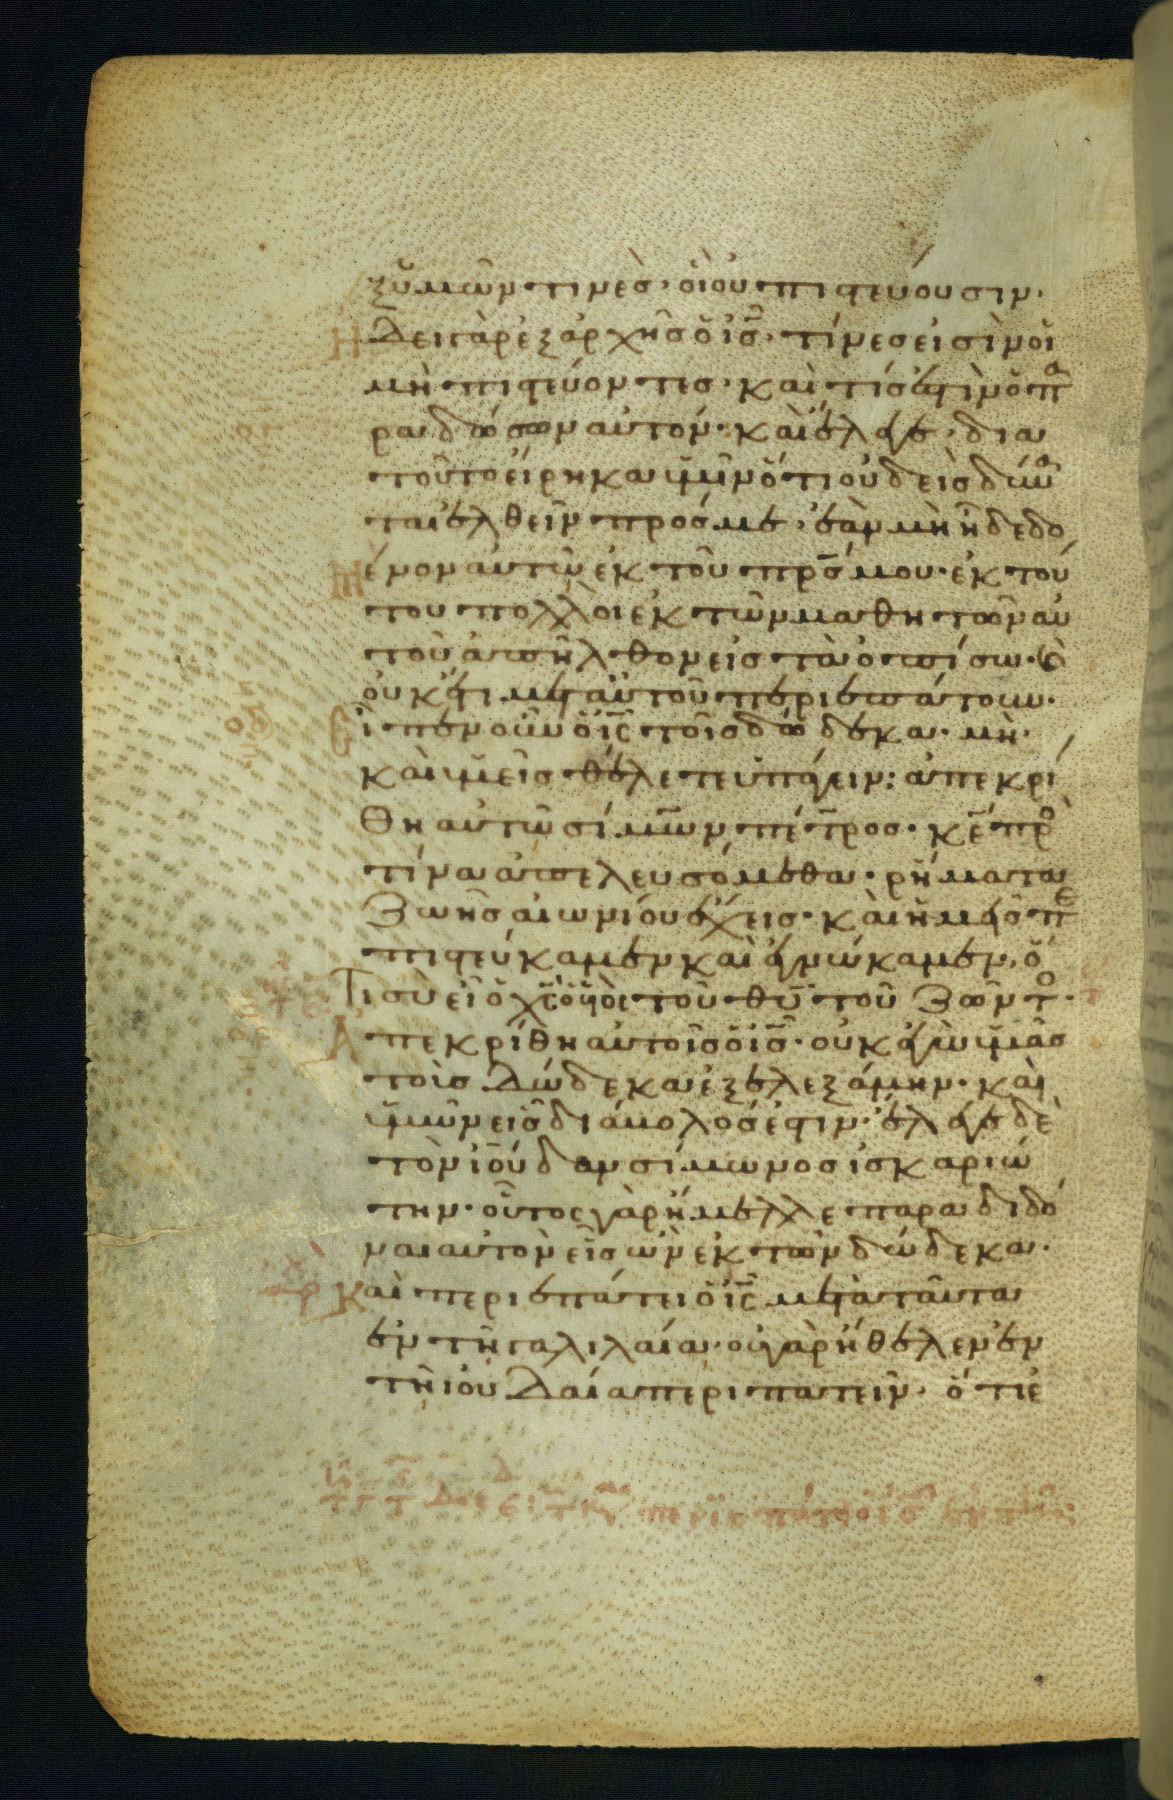 ξ ὑμῶν τινὲς· οἳ οὐ πιστεύουσιν·
Ἤδει γὰρ ἐξ ἀρχῆς ὁ ις̅· τίνες εἰσὶν οἱ
μὴ πιστεύοντες· καὶ τίς ἐστιν ὁ πα
ραδώσων αὐτόν· καὶ ἔλεγε· δια
τοῦτο εἴρηκα ὑμῖν ὅτι οὐδεὶς δύνα
ται ἐλθεῖν πρός με· ἐὰν μὴ ἦ δεδο
μένον αὐτῶ ἐκ τοῦ πρ̅ς μου· ἐκ τού
του πολλοὶ ἐκ τῶν μαθητῶν αὐ
τοῦ ἀπῆλθον εἰς τὰ ὀπίσω· καὶ
οὐκέτι μετ αὐτοῦ περιεπάτουν·
Εἶπεν οὖν ὁ ις̅ τοῖς δώδεκα· μὴ
καὶ ὑμεῖς θέλετε ὑπάγειν: ἀπεκρί
θη αὐτῶ σίμων πέτρος· κ̅ε πρὸ
τίνα ἀπελευσόμεθα· ῥήματα
ζωῆς αἰωνίου ἔχεις· καὶ ἡμεῖς πε
πιστεύκαμεν καὶ ἐγνώκαμεν, ὅ
τι σὺ εἶ ὁ χς̅ ὁ υἱὸς τοῦ θυ̅ τοῦ ζῶντο·
Ἀπεκρίθη αὐτοῖς ὁ ις̅· οὐκ ἐγὼ ὑμᾶς
τοὶς δώδεκα ἐξελεξάμην· καὶ
ὑμῶν εἷς διάβολός ἐστιν· ἔλεγε δὲ
τὸν ἰούδαν σίμωνος ἰσκαριώ
την· οὗτος γὰρ ἤμελλε παραδιδό
ναι αὐτὸν εἷς ὢν ἐκ τῶν δώδεκα·
Καὶ περιεπάτει ὁ ις̅ μετὰ ταῦτα
ἐν τῆ γαλιλαία· οὐ γὰρ ἤθελεν ἐν
τῆ ἰουδαία περιπατεῖν· ὅτι ἐ